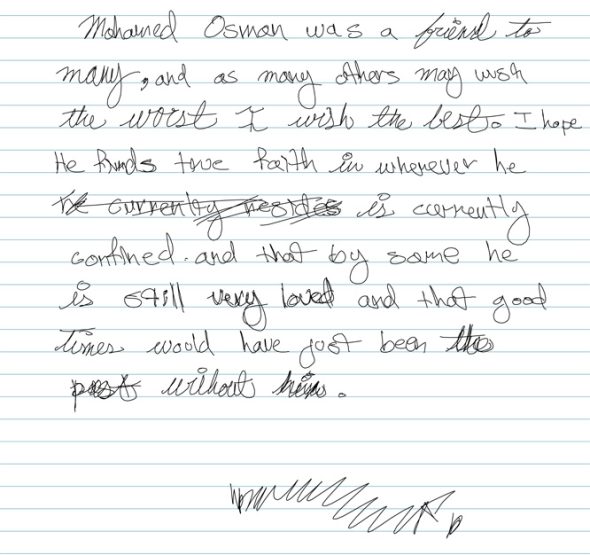 Mohamed Osman was a friend to
many, and as many others may wish
the worst I wish the best. I hope
He finds true faith in wherever he
he currently resides is currently
confined. and that by some he
is still very loved and that good
times would have just been the
past without him.